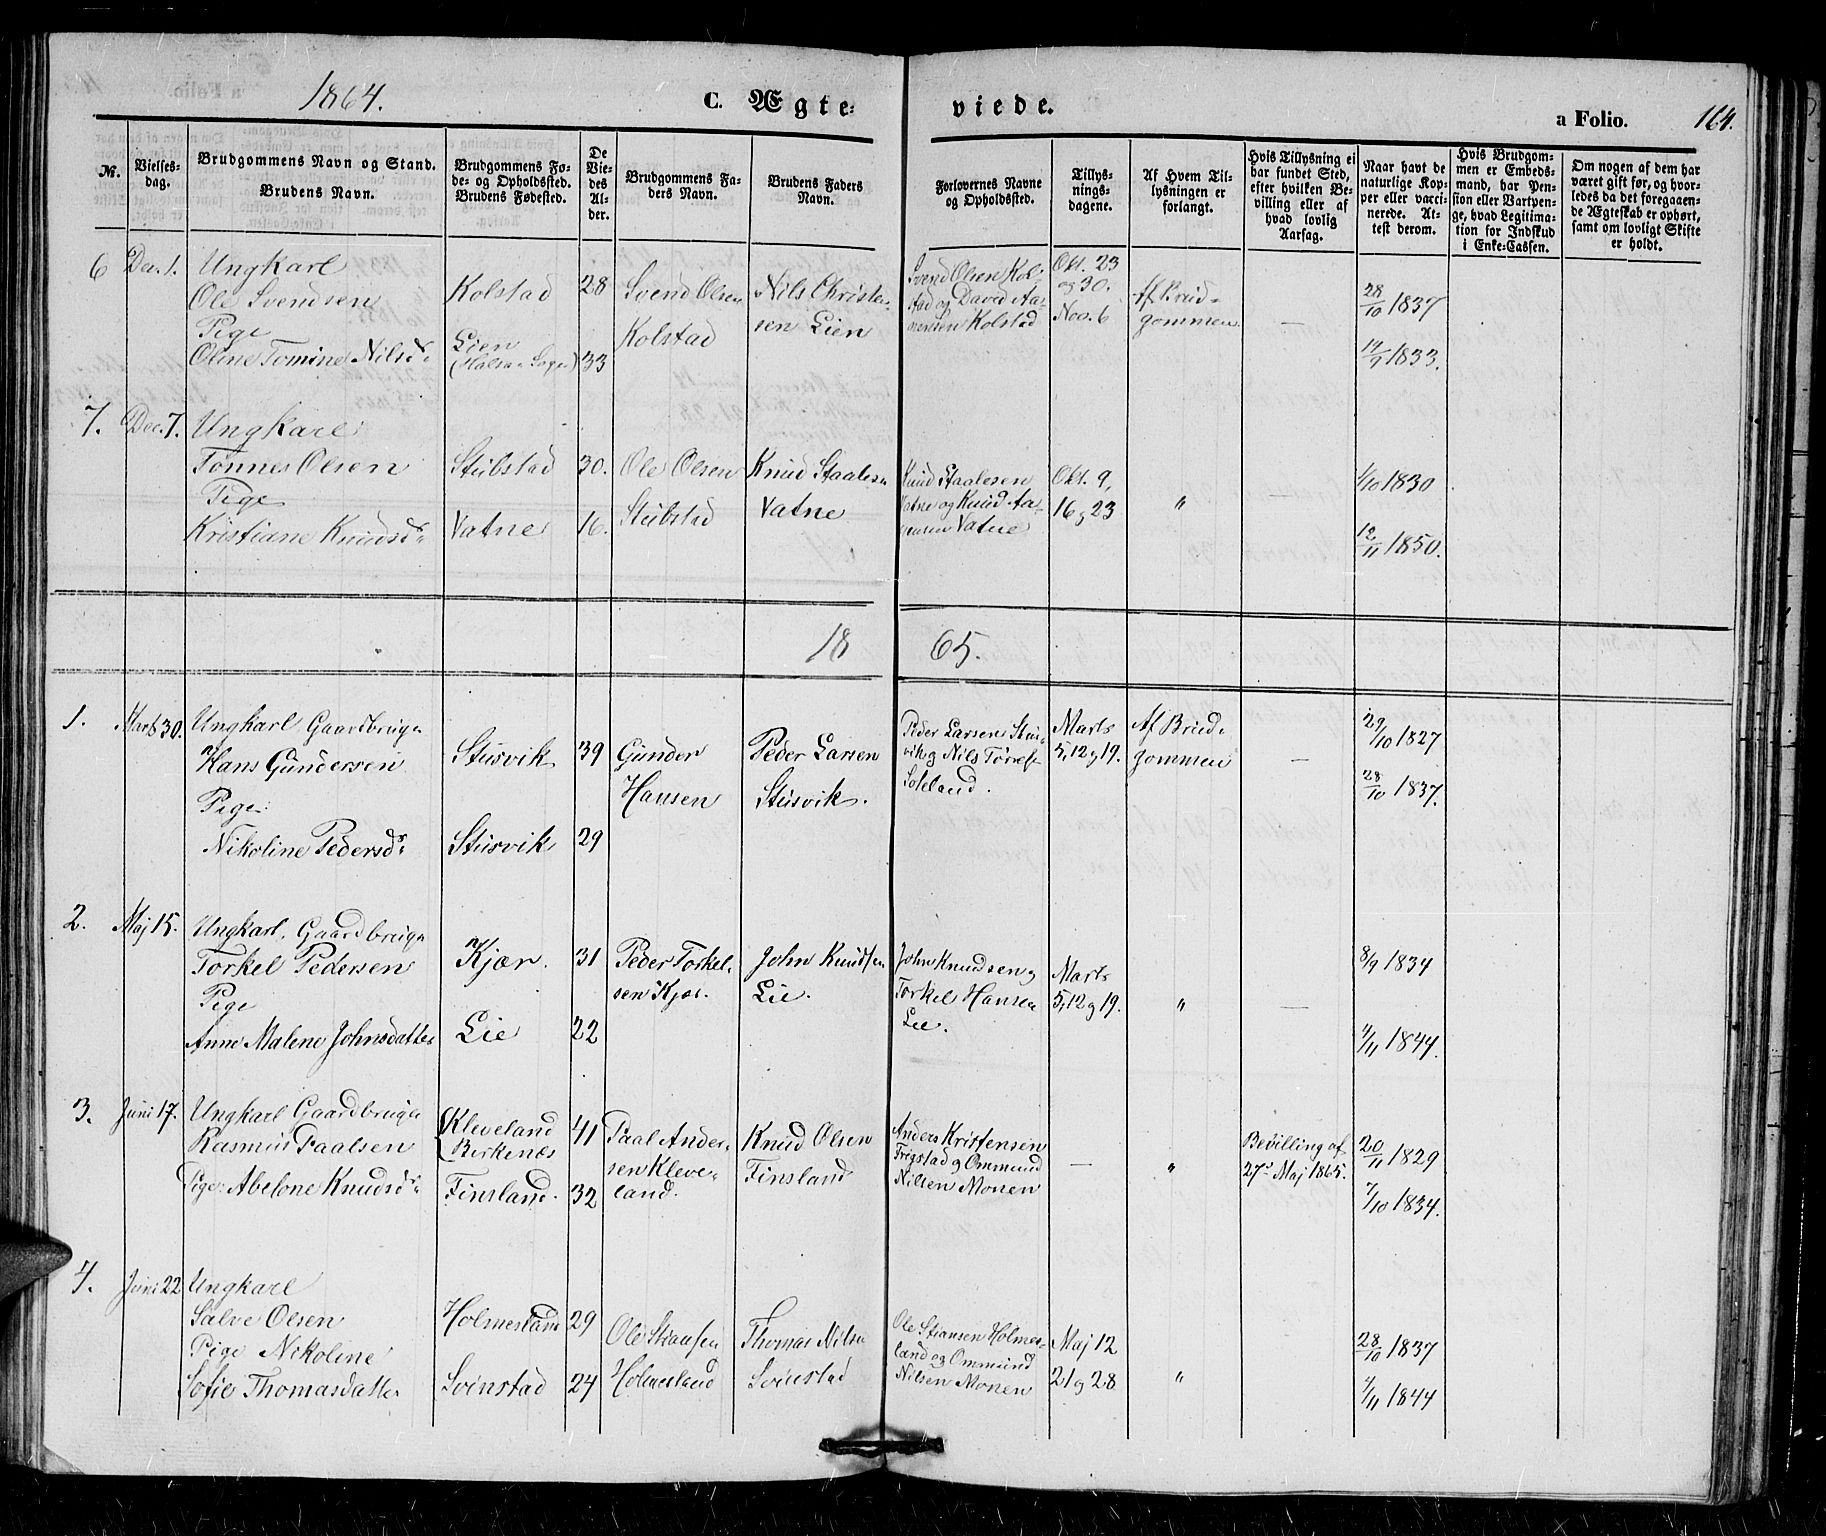 1864.
C. Ægte-
viede.
a Folio.
164.
№.
Vielses-
dag.
Brudgommens Navn og Stand.
Brudens Navn.
Brudgommens Fø-
de- og Opholdssted.
Brudens Fødested.
De
Vie-
des
Al-
der.
Brudgommens Fa-
ders Navn.
Brudens Faders
Navn.
Forlovernes Navne
og Opholdssted.
Tillys-
nings-
dagene.
Af Hvem Til-
lysningen er
forlangt.
Hvis Tillysning ei
har fundet Sted,
efter hvilken Be-
villing eller af
hvad lovlig
Aarsag.
Naar havt de
naturlige Kop-
per eller vacci-
nerede. At-
test derom.
Hvis Brudgom-
men er Embeds-
mand, har Pen-
sion eller Vartpen-
ge, hvad Legitima-
tion for Indskud
i Enke-Cassen.
Om nogen af dem har
været gift før, og hvor-
ledes da det foregaaen-
de Ægteskab er ophørt,
samt om lovligt Skifte
er holdt.
6 Dec. 1. Ungkarl
Ole Svendsen
Pige
Oline Tomine Nilsd.
Kolstad
Lien
(Halsaa Sogn)
28
33
Svend Olsen
Kolstad
Nils Christen-
sen Lien
Svend Olsen Kol-
stad og David Aa-
nensen Kolstad
Okt. 23
og 30.
Nov. 6
Af Brud-
gommen
—
28/10 1837
19/9 1833.
7. Dec. 7. Ungkarl
Tønnes Olsen
Pige
Kristiane Knudsd.
Stubstad
Vatne
30.
16.
Ole Olsen
Stubstad
Knud Staalesn
Vatne
Knud Staalesen
Vatne og Knud Aa-
Vatne
Okt. 9,
16 og 23
"
—
1/10 1830
12/11 1850.
18 65.
1. Marts 30. Ungkarl Gaardbruger
Hans Gundersen
Pige
Nikoline Pedersd.
Stusvik
Stusvik
39
29
Gunder
Hansen
Peder Larsen
Stusvik.
Peder Larsen Stus-
vik og Nils Tørres
Soleland.
Marts
5, 12 og 19.
Af Brud-
gommen
—
29/10 1827
28/10 1837.
2. Maj 15. Ungkarl, Gaardbruger
Torkel Pedersen
Pige
Anne Malene Johnsdatter
Kjær.
Lie
31
22
Peder Torkel-
sen Kjær.
John Knudsen
Lie.
John Knudsen og
Torkel Hansen
Lie.
Marts
5, 12 og 19.
"
—
8/9 1834
4/11 1844.
3. Juni 17. Ungkarl Gaardbruger
Rasmus Paalsen
Pige: Abelone Knudsd.
Kleveland
Birkenæs
Finsland.
41
32
Paal Ander-
sen Kleve-
land.
Knud Olsen
Finsland
Anders Kristensen
Frigstad og Ommund
Nilsen Monen
—
"
Bevilling af
27. Maj 1865.
20/11 1829
7/10 1834.
4. Juni 22 Ungkarl
Salve Olsen
Pige Nikoline
Sofie Thomasdatter
Holmesland
Svinstad
29
24
Ole Stiansen
Holmesland
Thomas Nilsen
Svinstad
Ole Stiansen Holmes-
land og Ommund
Nilsen Monen
Maj 12
21 og 28.
"
28/10 1837
4/11 1844